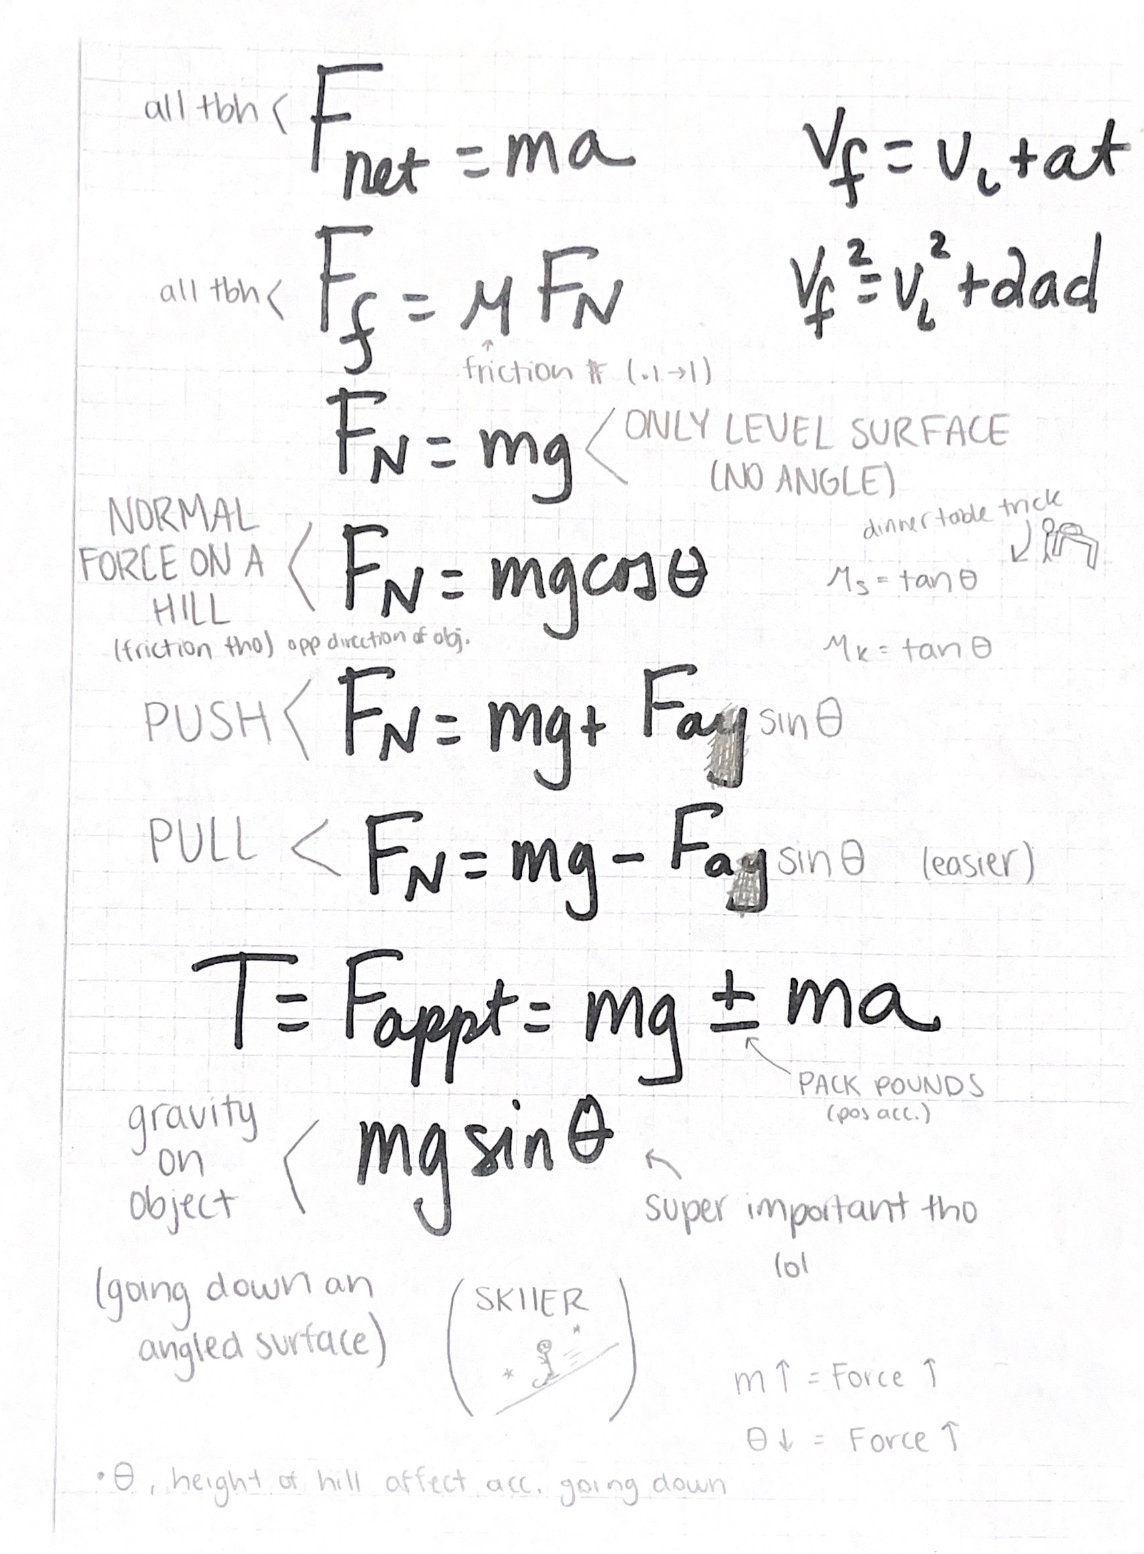 all tbh < Fnet = ma
Vf = Vi + at
all tbh < Ff = μ FN
Vf² = Vi² + 2ad
friction # (.1→1)
FN = mg < ONLY LEVEL SURFACE
(NO ANGLE)
NORMAL
FORCE ON A
HILL
< FN = mgcosθ
(friction tho) opp direction of obj.
dinner table trick
μs = tanθ
μk = tanθ
PUSH < FN = mg + Fay sinθ
PULL < FN = mg - Fay sinθ (easier)
T = Fappt = mg ± ma
PACK POUNDS
(pos acc.)
gravity
on
object
< mg sinθ
super important tho
lol
(going down an
angled surface)
(SKIIER)
m↑ = Force ↑
θ↓ = Force ↑
•θ, height of hill affect acc. going down